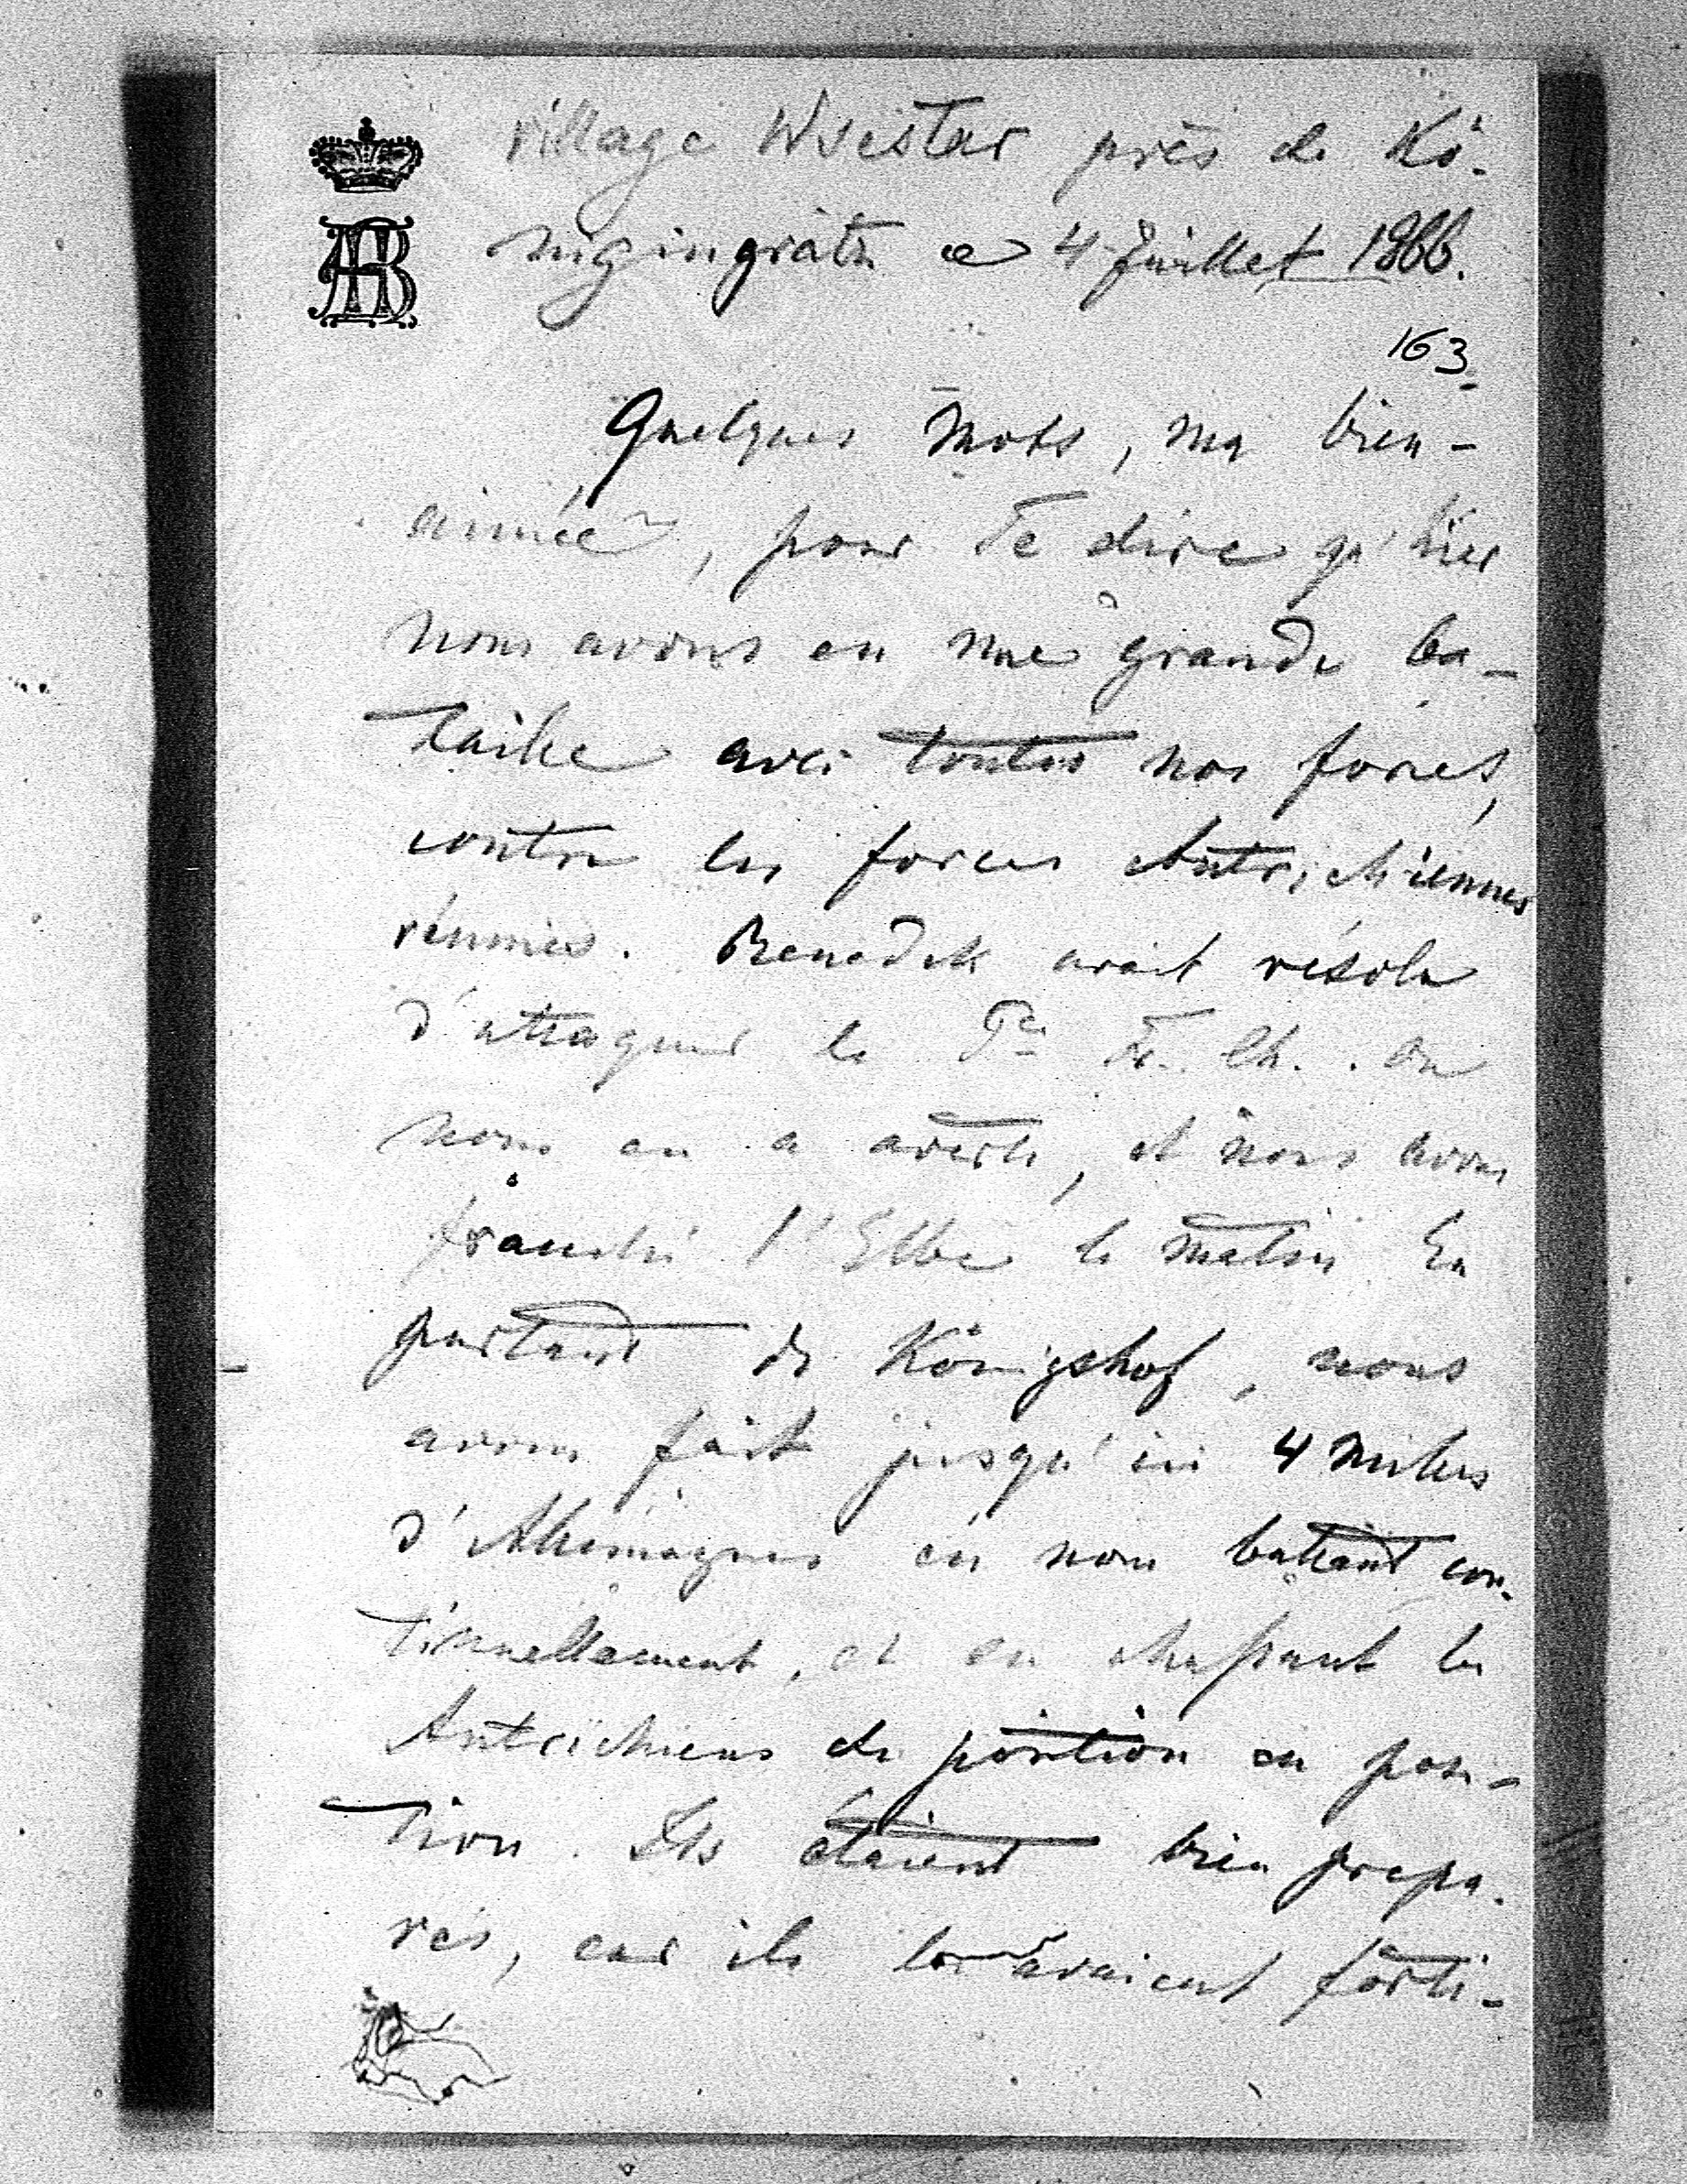 village Wsestar près de Kö-
nigingrätz ce 4 Juillet 1866.
163
Quelques mots, ma bien-
aimée, pour Te dire qu'hier
nous avons eu une grande ba-
taille avec toutes nos forces,
contre les forces Autrichiennes
réunies. Benedek avait résolu
d'attaquer le Pce Fr. Ch. . On
nous en a averti, et nous avons
franchi l'Elbe le matin. En
partant de Königshof, nous
avons fait jusqu'ici 4 milles
d'Allemagne en nous battant con-
tinuellement, et en chassant les
Autrichiens de position en posi-
tion. Ils étaient bien prepa-
rés, car ils avaient forti-